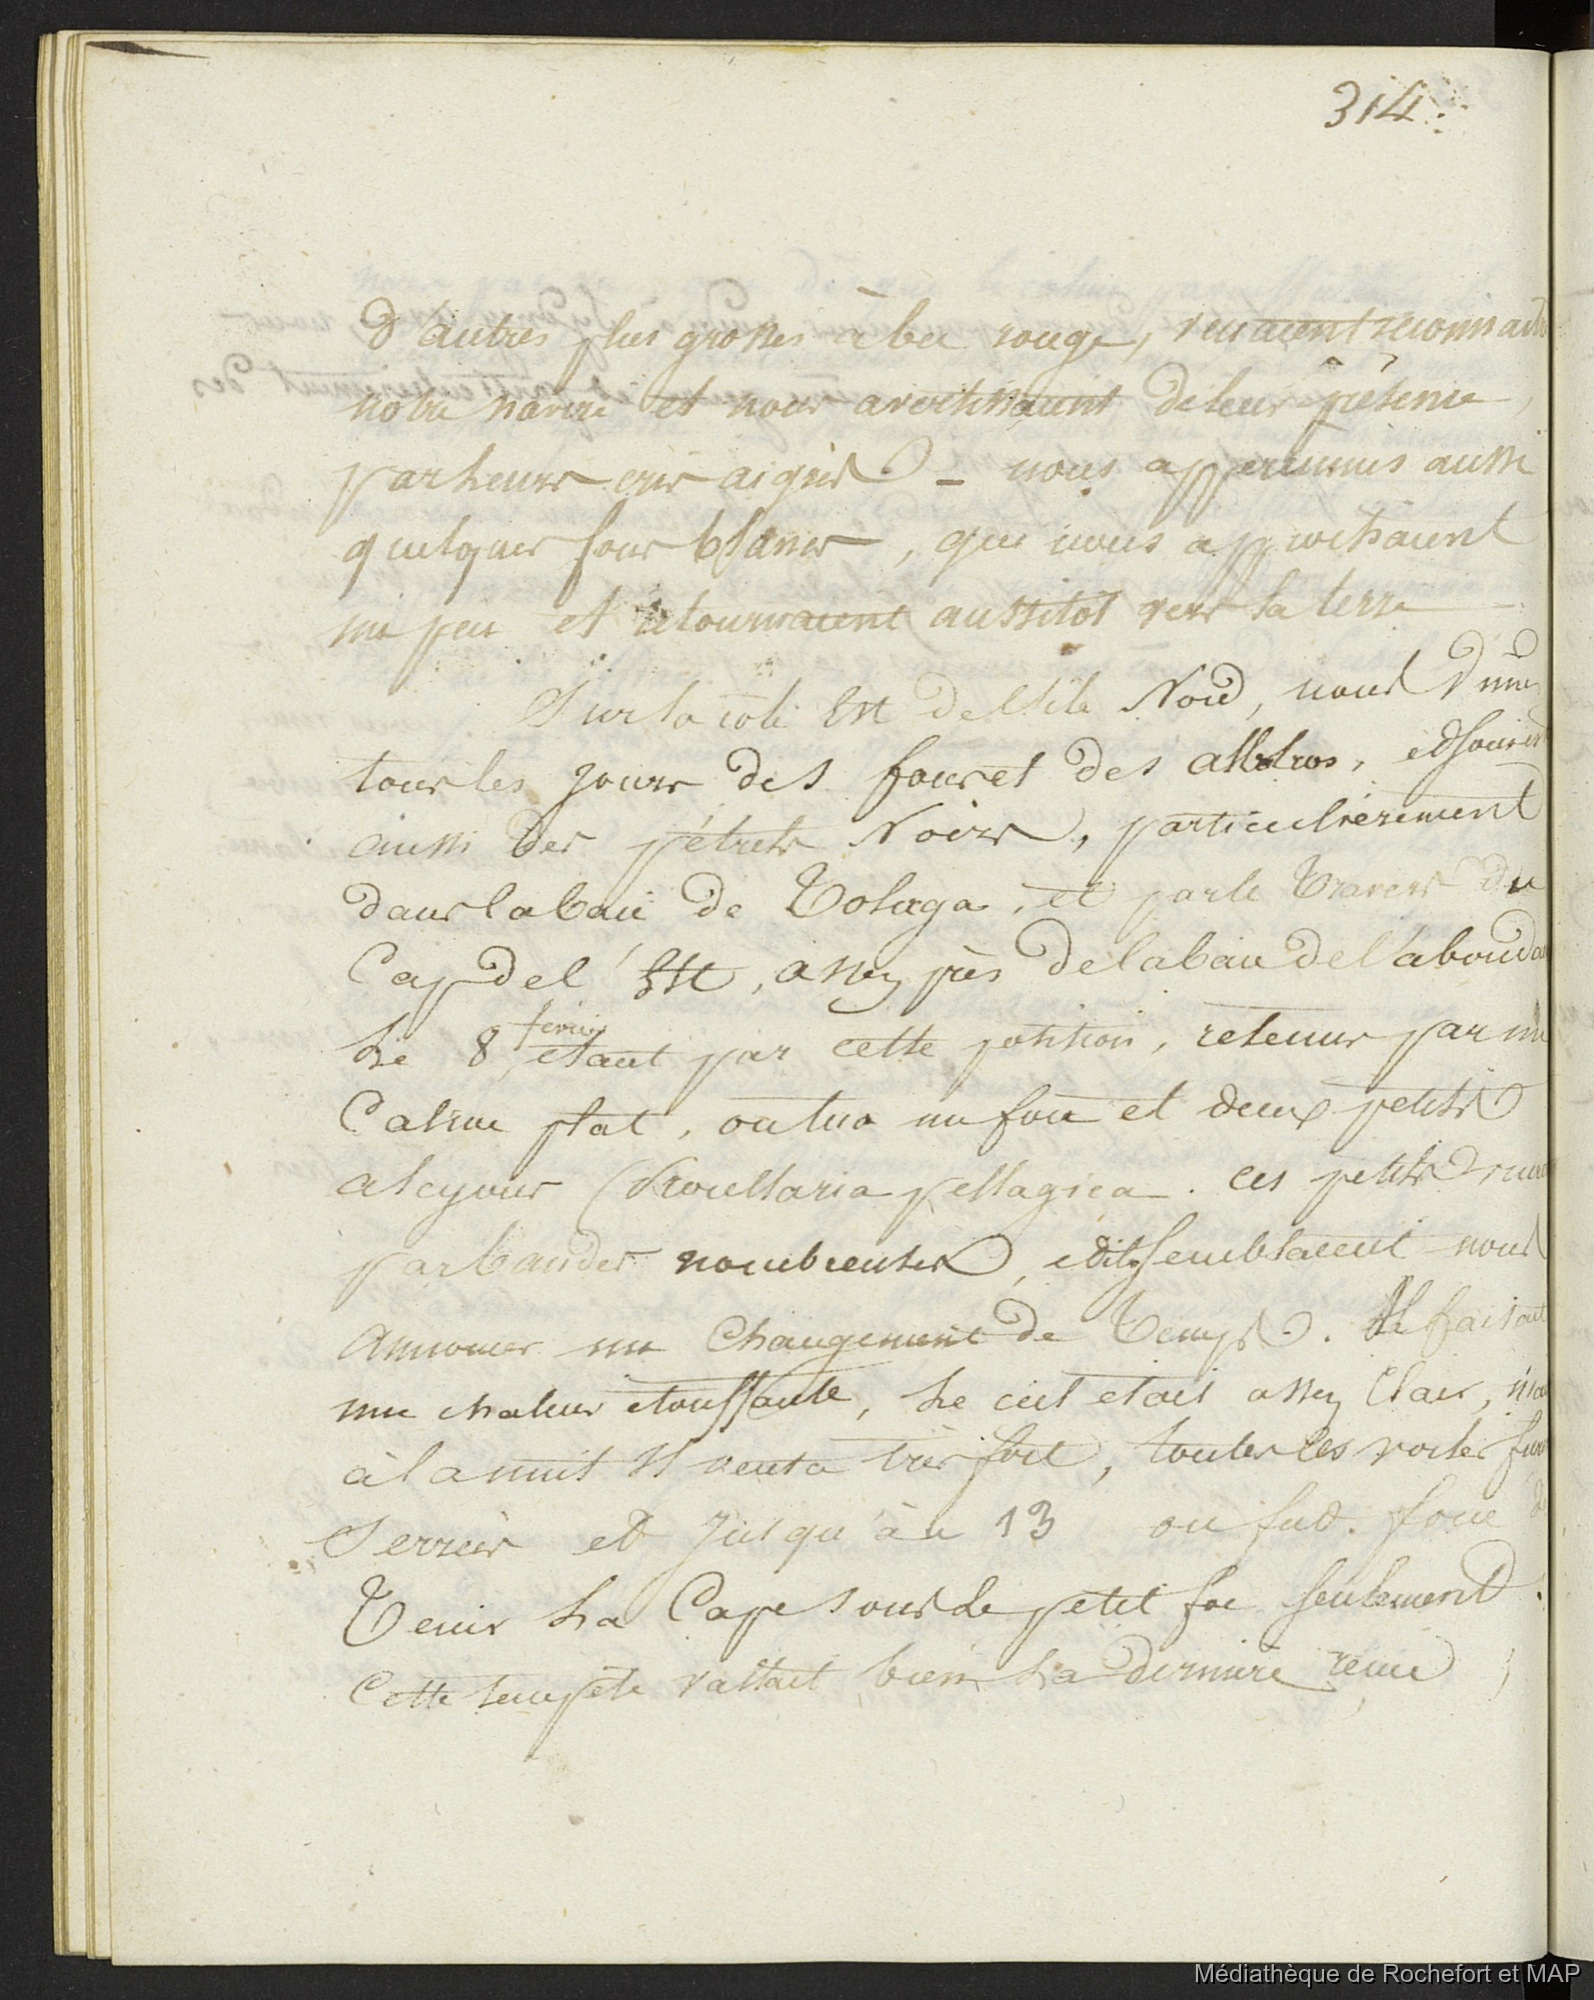 314.
d'autres plus grosses à bec rouge, venaient reconnaitre
notre navire et nous avertissaient de leur présence,
par leurs cris aigus – nous apperçumes aussi
quelques fous blancs, qui nous approchaient
un peu et retournaient aussitot vers la terre –
Sur la côte Est de l'île Nord, nous vimes
tous les jours des fous et des albatros, et souvent
aussi des pétrels Noirs, particulièrement
dans la baie de Tolaga, et par le Travers du
Cap de l'Est, assez près de la baie de l'abondance
Le 8 février étant par cette position, retenus par un
Calme plat, on tua un fou et deux petits
alcyons (Procellaria pellagica. Ces petits
par bandes nombreuses, et ils semblaient nous
annoncer un Changement de Temps. Il faisait
une chaleur étouffante, le ciel était assez Clair, mais
à la nuit il venta très fort, toutes les voiles furent
Serrées et jusqu'au 13 on fut forcé de
Tenir la Cape sous le petit foc seulement.
Cette tempête vallait bien la dernière reçue ;
Médiathèque de Rochefort et MAP